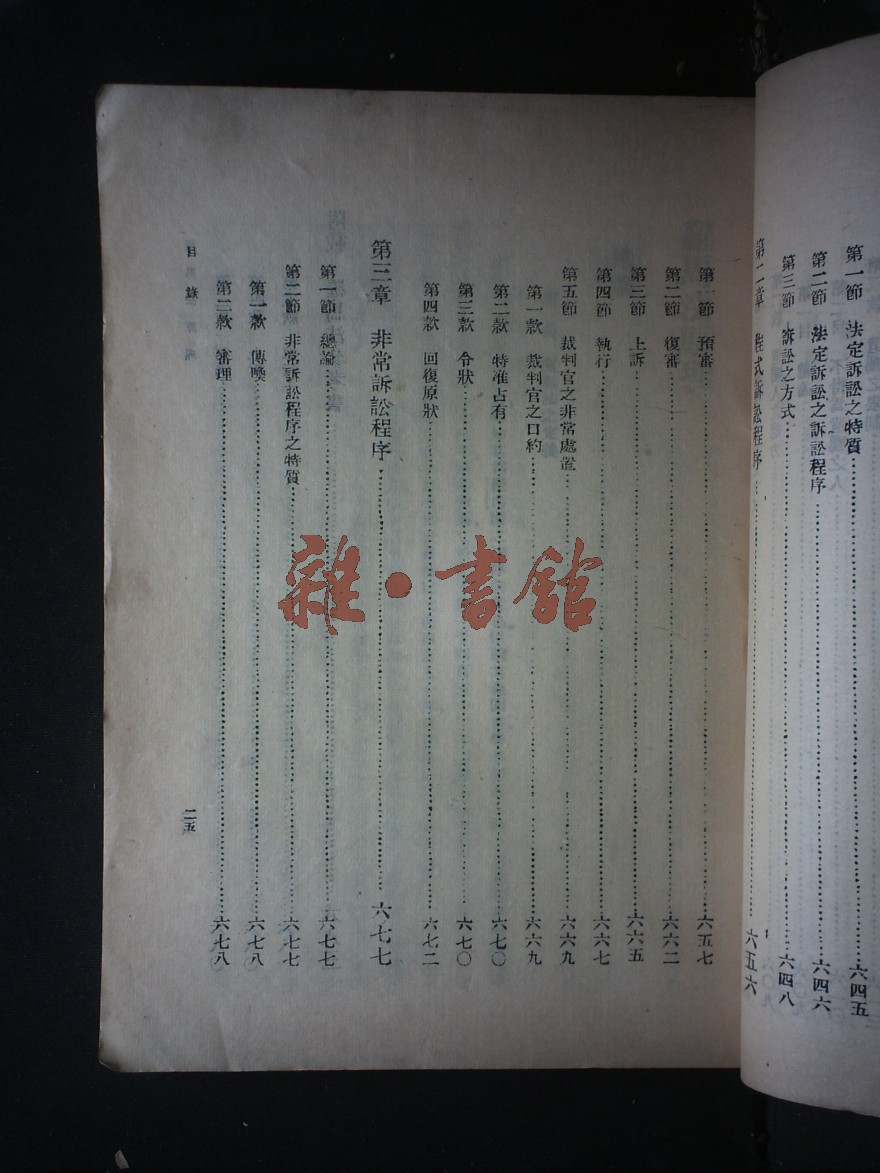 第一節　法定訴訟之特質……六四五
第二節　法定訴訟之訴訟程序……六四六
第三節　訴訟之方式……六四八
第二章　程式訴訟程序……六五六
第一節　預審……六五七
第二節　復審……六六二
第三節　上訴……六六五
第四節　執行……六六七
第五節　裁判官之非常處置……六六九
第一款　裁判官之口約……六六九
第二款　特准占有……六七〇
第三款　令狀……六七〇
第四款　回復原狀……六七二
第三章　非常訴訟程序……六七七
第一節　總論……六七七
第二節　非常訴訟程序之特質……六七七
第一款　傳喚……六七八
第二款　審理……六七八
目錄
二五
雜·書館